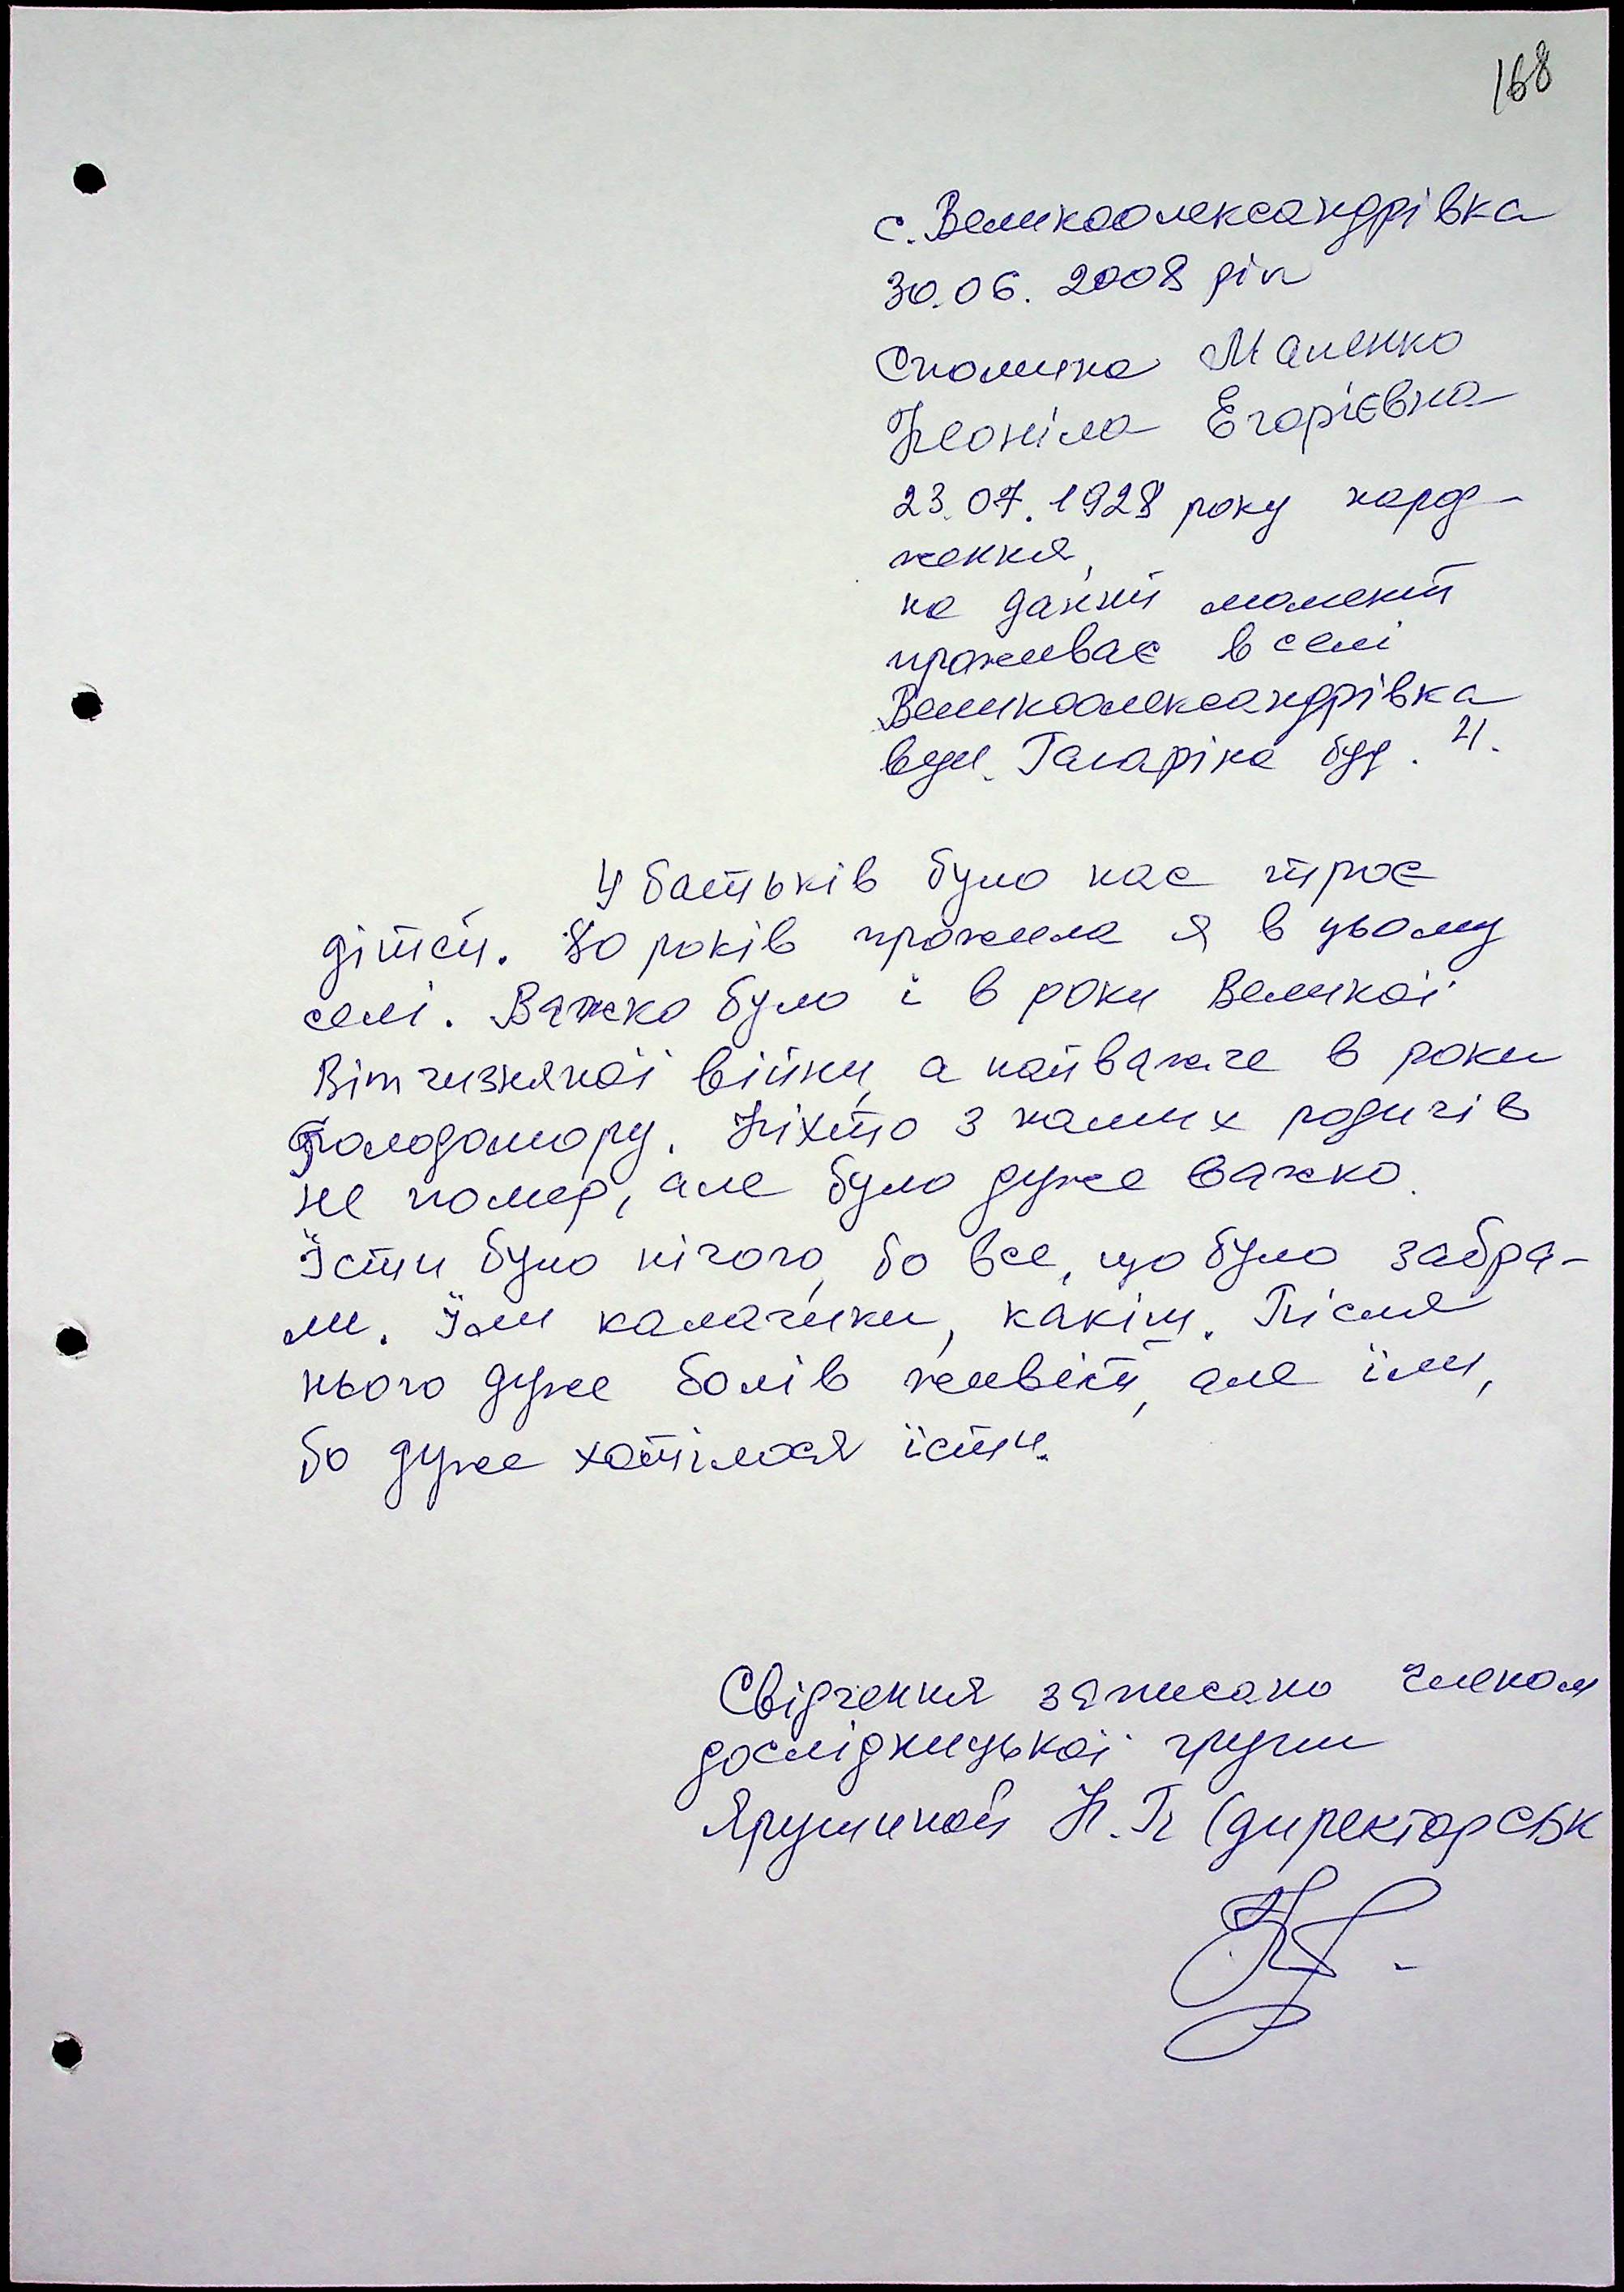 168
с. Великоолександрівка
30.06. 2008 рік
Спомина Маленко
Неоніла Егорієвна
23.07.1928 року народ-
ження,
на даний момент
проживає в селі
Великоолександрівка
вул. Гагаріна буд. 21.
У батьків було нас троє
дітей. 80 років прожила я в цьому
селі. Важко було і в роки Великої
Вітчизняної війни, а найважче в роки
голодомору. Ніхто з наших родичів
не помер, але було дуже важко.
Їсти було нічого, бо все, що було забра-
ли. Їли калачики, какіш. Після
нього дуже болів живіт, але їли,
бо дуже хотілося їсти.
Свідчення записано членом
дослідницької групи
Ярушиной Н.П (директор СБК